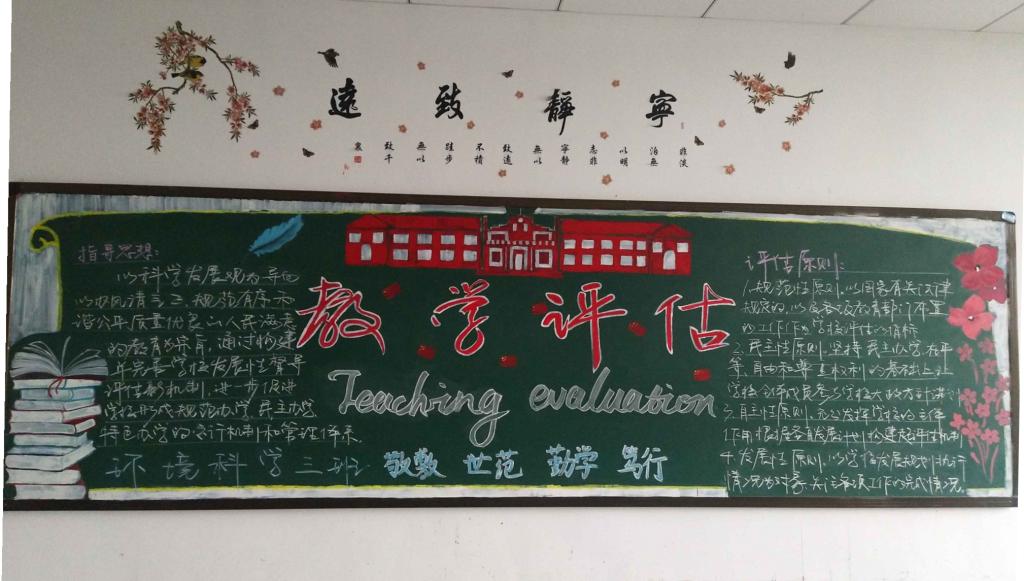 寧靜致遠
非淡泊無以明志非寧静無以致遠不積跬步無以致千裏
指导思想:
以科学发展观为导向
以校风清正、规范有序、和
谐公平、质量优良、人民满意
的教育为宗旨,通过构建
并完善学校发展性督导
评估新机制,进一步促进
学校形成规范办学、民主办学
特色办学的运行机制和管理体系.
教学评估
Teaching evaluation
环境科学三班 敬教 世范 勤学 笃行
评估原则:
1.规范性原则.以国家有关法律
规定的,以及各级教育部门布置
的工作作为学校评估的指标
2.民主性原则.坚持民主办学,在平
等、自由和尊重权利的基础上让
学校全体成员参与学校大政方针
3.自主性原则.充分发挥学校的主体
作用.根据各自发展规划,构建校评估机制
4.发展性原则.以学校发展规划执行
情况为对象,关注各项工作的完成情况.